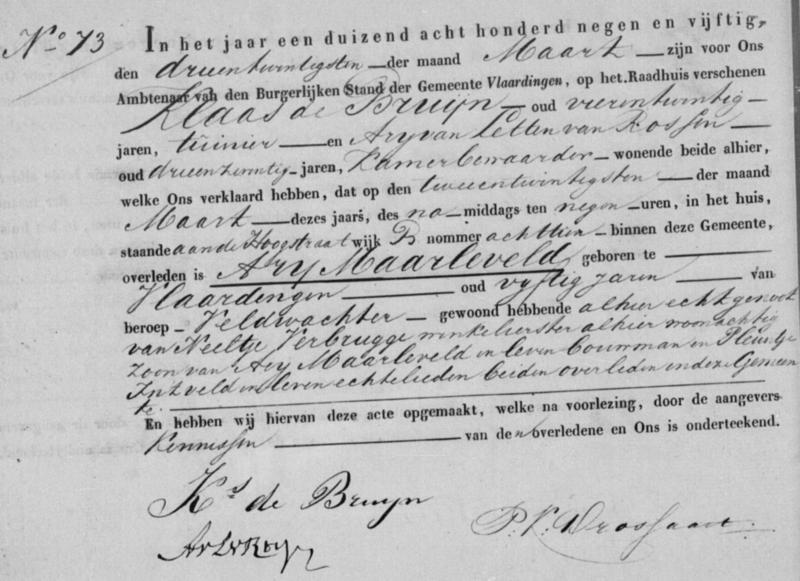 No 73 In het jaar een duizend acht honderd negen en vijftig,
den drieentwintigsten der maand Maart zijn voor Ons
Ambtenaar van den Burgerlijken Stand der Gemeente Vlaardingen, op het Raadhuis verschenen
Klaas de Bruijn oud vierentwintig
jaren, tuinier en Ary van Letten van Rossen
oud drieenzeventig jaren, Kamerbewaarder wonende beide alhier,
welke Ons verklaard hebben, dat op den tweeentwintigsten der maand
Maart dezes jaars, des na middags ten negen uren, in het huis,
staande aan de Hoogstraat wijk B nommer achttien binnen deze Gemeente,
overleden is Ary Maarleveld geboren te
Vlaardingen oud vyftig jaren van
beroep Veldwachter gewoond hebbende alhier echtgenoot
van Neeltje Verbrugge winkelierster alhier woonachtig
zoon van Ary Maarleveld in leven bouwman en Pleuntje
Int veld in leven echtelieden beiden overleden in deze Gemeen
te.
En hebben wij hiervan deze acte opgemaakt, welke na voorlezing, door de aangevers
Kennissen van den overledene en Ons is onderteekend.
Ks de Bruyn
P. K. Drossaart